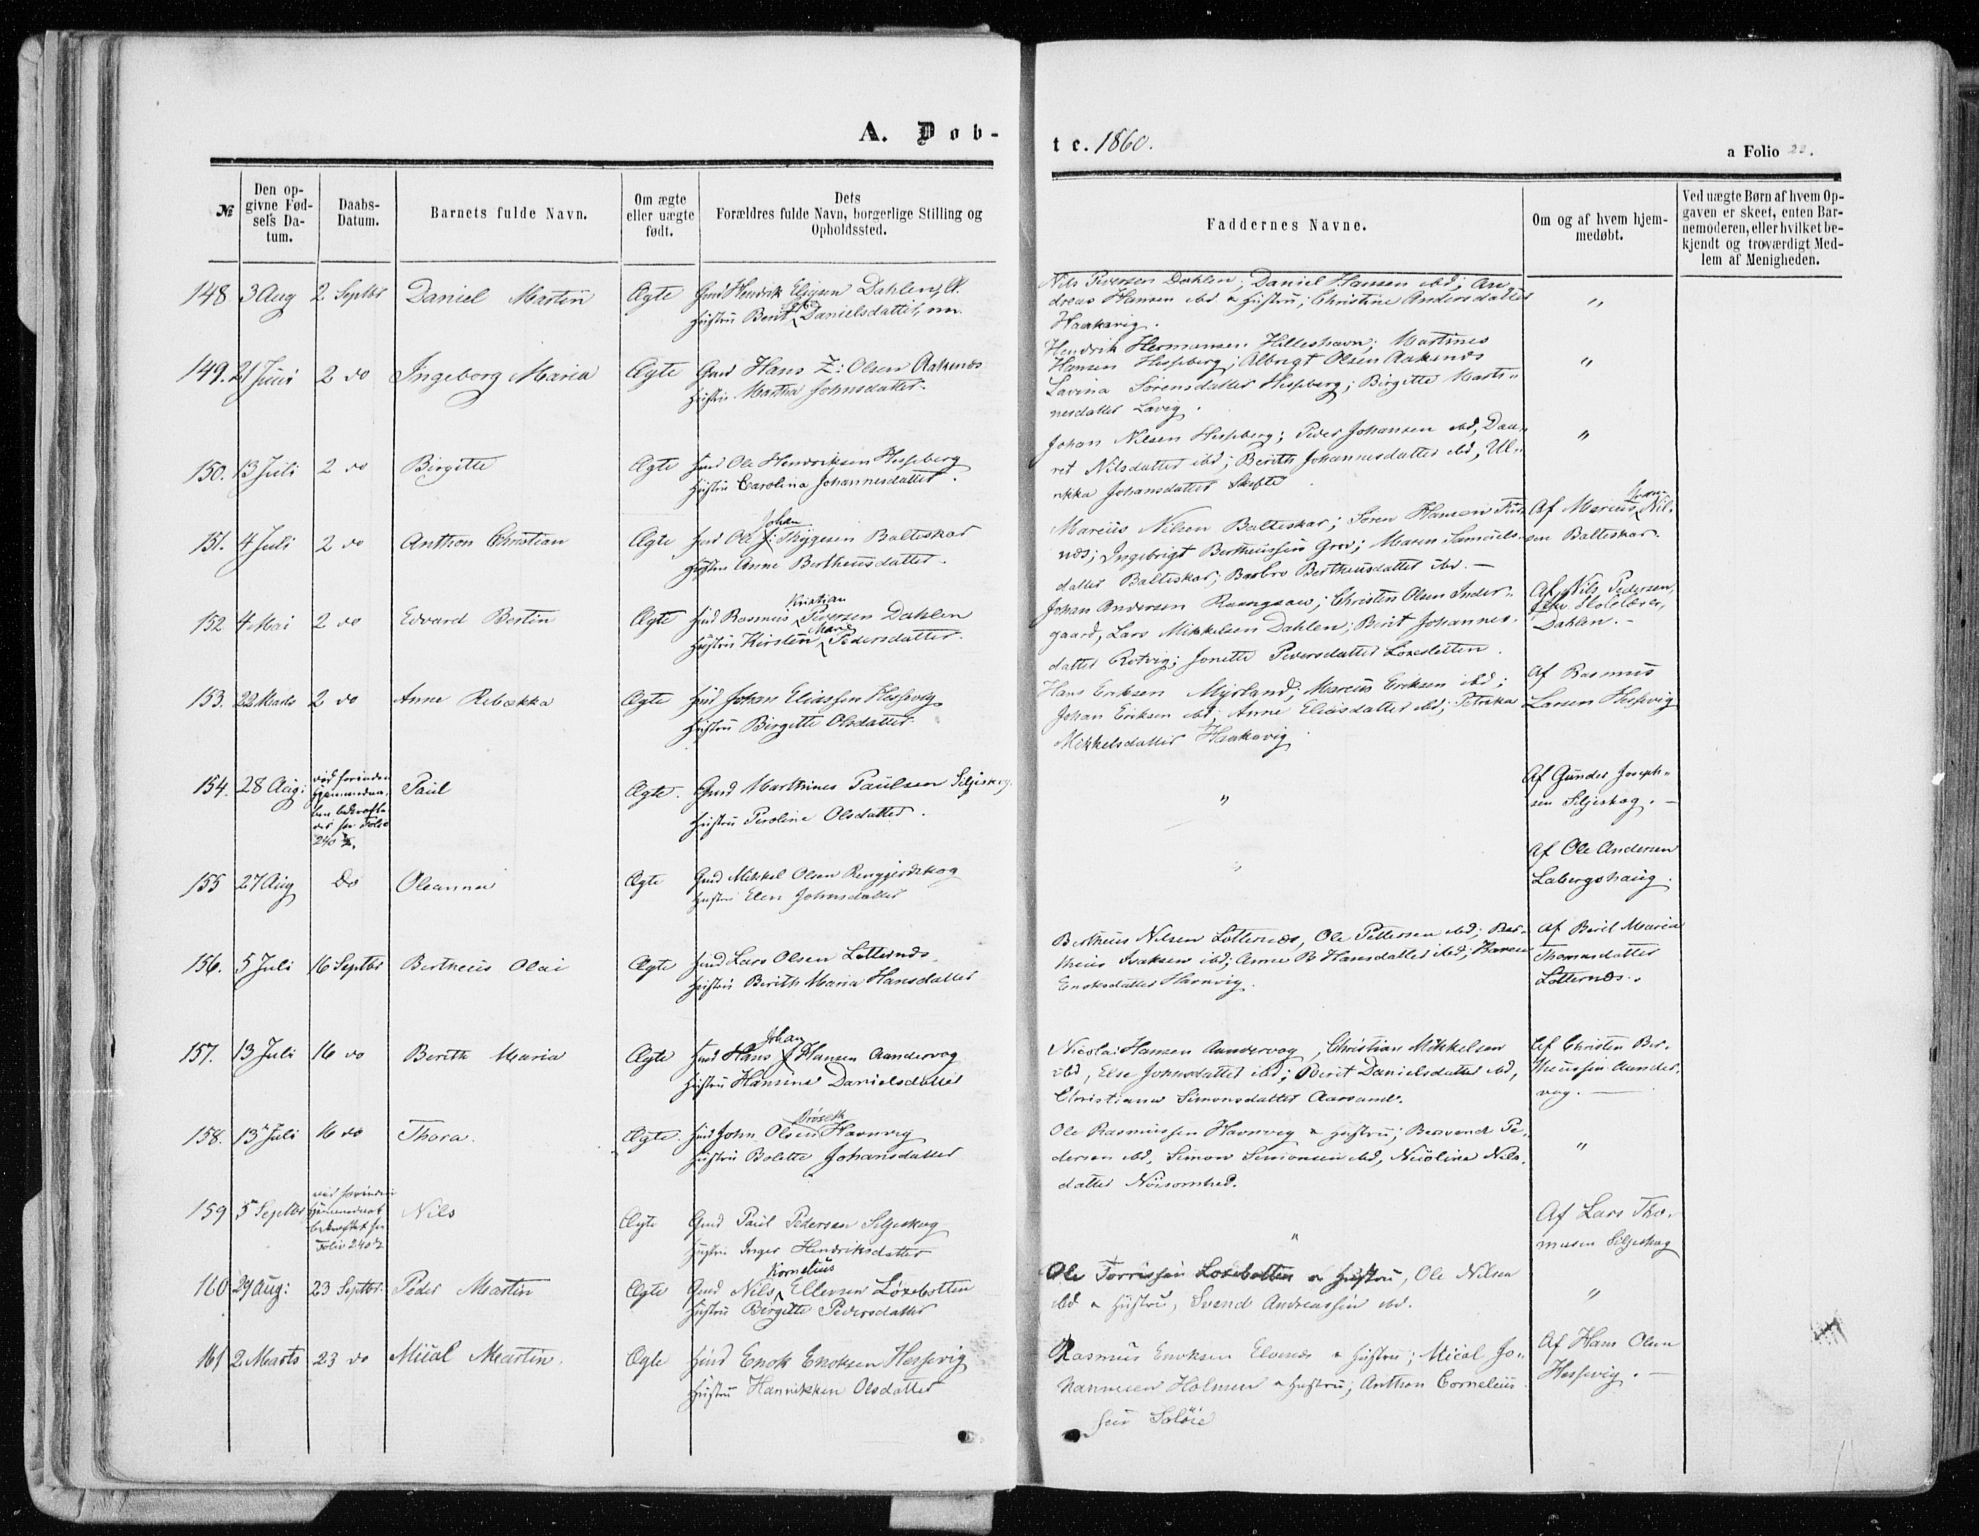 A. Døb-
te. 1860.
a Folio
№
Den op-
givne Fød-
sels Da-
tum.
Daabs-
Datum.
Barnets fulde Navn.
Om ægte
eller uægte
født.
Dets
Forældres fulde Navn, borgerlige Stilling og
Opholdssted.
Faddernes Navne.
Om og af hvem hjem-
medøbt.
Ved uægte Børn af hvem Op-
gaven er skeet, enten Bar-
nemoderen, eller hvilket be-
kjendt og troværdigt Med-
lem af Menigheden.
148 3 Aug 2 Septbr Daniel Martin Ægte Hendrik Dahlen
Hustru Berit Danielsdatter
Nils Pedersen Dahlen; Daniel Hansen ibd; An-
dreas Hansen ibd & Hustru; Christine Andersdatter
Haakavig.
"
149. 21 Juni 2 do Ingeborg Maria Ægte Hans Z: Olsen Aakenæs
Hustru Martha Johnsdatter.
Hendrik Hermansen Hilleshavn; Martines
Hansen Hesseberg; Albregt Olsen Aakenæs
Lavina Sørensdatter Hesseberg; Birgitte Marti-
nesdatter Lavig.
"
150. 13 Juli 2 do Birgitte Ægte Ole Hendriksen Hesseberg
Hustru Carolina Johannesdatter.
Johan Nilsen Hesseberg; Peder Johansen ibd, Daa-
ret Nilsdatter ibd; Berith Johannesdatter ibd, Ul-
rikka Johansdatter
"
151. 4 Juli 2 do Anthon Christian Ægte Ole Johan Thygesen Balteskar
Hustru Anne Bertheusdatter.
Marcus Nilsen Balteskar; Søren Hansen
næs; Ingebrigt Bertheussen Grov; Maren Samuels-
datter Balteskar; Barbro Bertheusdatter ibd. —
Af Marcus Nil-
sen Balteskar.
152 4 Mai 2 do Edvard Bertin Ægte Rasmus Kristian Pedersen Dahlen
Hustru Kirsten Mard Pedersdatter.
Johan Andersen; Christen Olsen Inder-
gaard, Lars Mikkelsen Dahlen; Berit Johannes-
datter Rotvig; Jonette Pedersdatter
Af Nils Pedersen,
Dahlen. -
153. 22 Marts 2 do Anne Rebekka Ægte Johan Eliassen Hessevig
Hustru Birgitte Olsdatter
Hans Eriksen Myrland; Marcus Eriksen ibd;
Johan Eriksen ibd; Anne Eliasdatter ibd; Petrika
Mikkelsdatter Haakavig
Af Rasmus
Larsen Hessevig
154. 28 Aug: Paul Ægte. Marthines Paulsen Siljeskog.
Hustru Peroline Olsdatter.
"
Af Gunder Joseph-
sen Siljeskog. —
155 27 Aug Do Oleanna Ægte Mikkel Olsen
Hustru Elen Johnsdatter
"
Af Ole Andersen
Labergshaug.
156. 5 Juli 16 Septbr Bertheus Olai Ægte Lars Olsen Lotternæs.
Hustru Berith Maria Hansdatter
Bertheus Nilsen Lotternæs, Ole Pettersen ibd; Ber-
theus Isaksen ibd; Anne B Hansdatter ibd; Haren
Enoksdatter Havnvig.
Af Beril Maria
Thomasdatter
Lotternæs.
157. 13 Juli 16 do Berith Maria Ægte Hans Johan Hansen Aandervog
Hustru Hansine Danielsdatter
Nicolai Hansen Aandervog, Christian Mikkelsen
ibd, Else Johnsdatter ibd; Berit Danielsdatter ibd,
Christiana Simonsdatter Aarsand.
Af Christen Ber-
theussen Aander-
vog. —
158. 13 Juli 16 do Thora. Ægte. John Olsen Brøseth Havnvig
Hustru Bolette Johansdatter
Ole Rasmussen Havnvig & Hustru; Bersvend Pe-
dersen ibd, Simon Simonsen ibd, Nicoline Nils-
datter Nøisomhed.
"
159 5 Septbr Nils Ægte Paul Pedersen Siljeskog
Hustru Inger Hendriksdatter
"
Af Lars Tho-
masen Siljeskog
160 29 Aug: 23 Septbr. Peder Martin Ægte Nils Kornelius Ellevsen Løksebotten
Hustru Birgitte Pedersdatter
Ole Torrissen Løksebotten & Hustru, Ole Nilsen
ibd & Hustru, Svend Andreassen ibd.
"
161 2 Marts 23 do Mical Martin. Ægte Enok Enoksen Hessevig
Hustru Hannikken Olsdatter
Rasmus Enoksen Elvenæs & Hustru; Mical Jo-
hannesen Holmen & Hustru; Anthon Cornelius-
sen Saløie
Af Hans Olsen
Hessevig. —